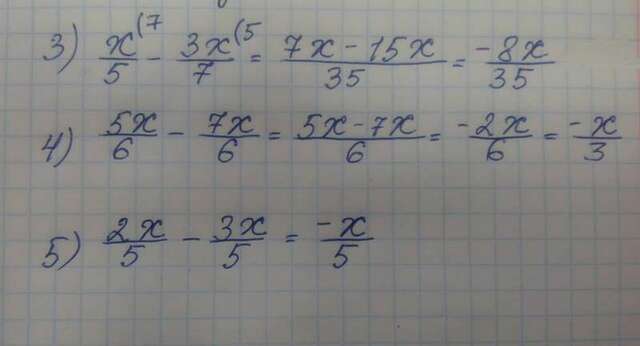 3) x/5 (7 - 3x/7 (5 = 7x-15x/35 = -8x/35
4) 5x/6 - 7x/6 = 5x-7x/6 = -2x/6 = -x/3
5) 2x/5 - 3x/5 = -x/5